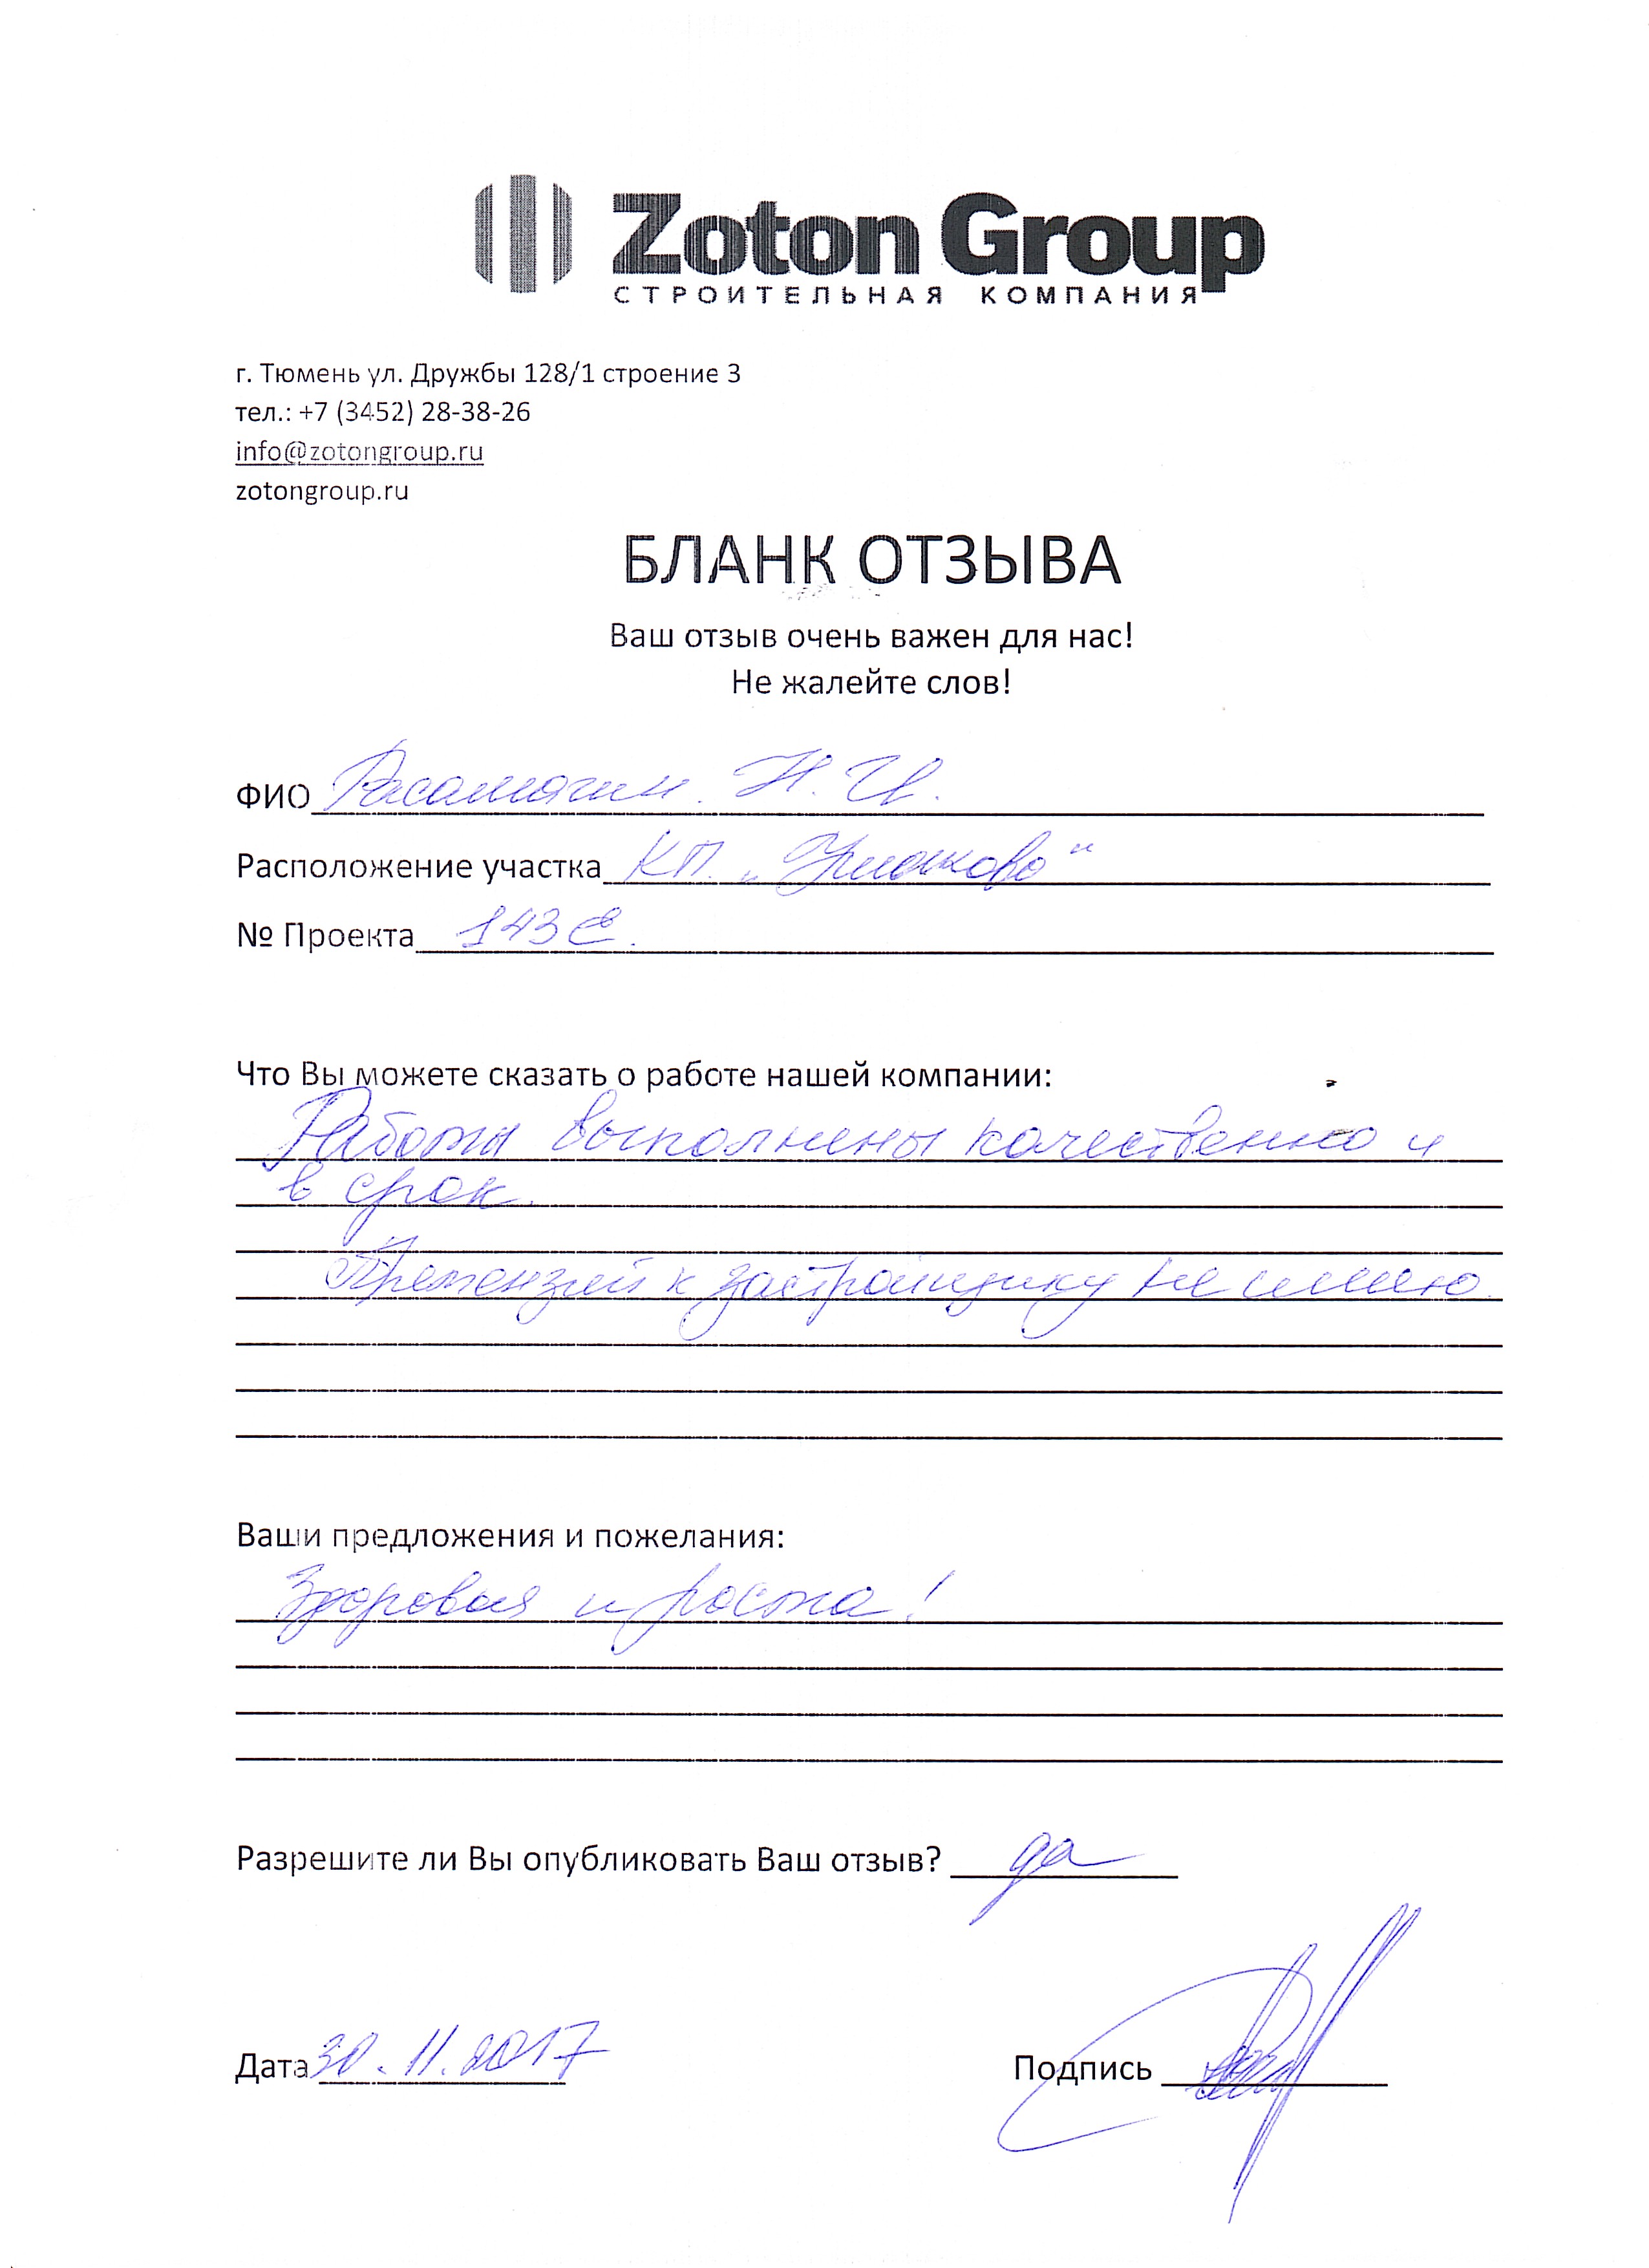 Zoton Group
СТРОИТЕЛЬНАЯ КОМПАНИЯ
г. Тюмень ул. Дружбы 128/1 строение 3
тел.: +7 (3452) 28-38-26
info@zotongroup.ru
zotongroup.ru
БЛАНК ОТЗЫВА
Ваш отзыв очень важен для нас!
Не жалейте слов!
ФИО Н. И.
Расположение участка КП.
№ Проекта 143
Что Вы можете сказать о работе нашей компании:
Работы выполнены качественно и
в срок.
Претензий к застройщику не имею.
Ваши предложения и пожелания:
Здоровья и роста!
Разрешите ли Вы опубликовать Ваш отзыв? да
Дата 30.11.2017 Подпись